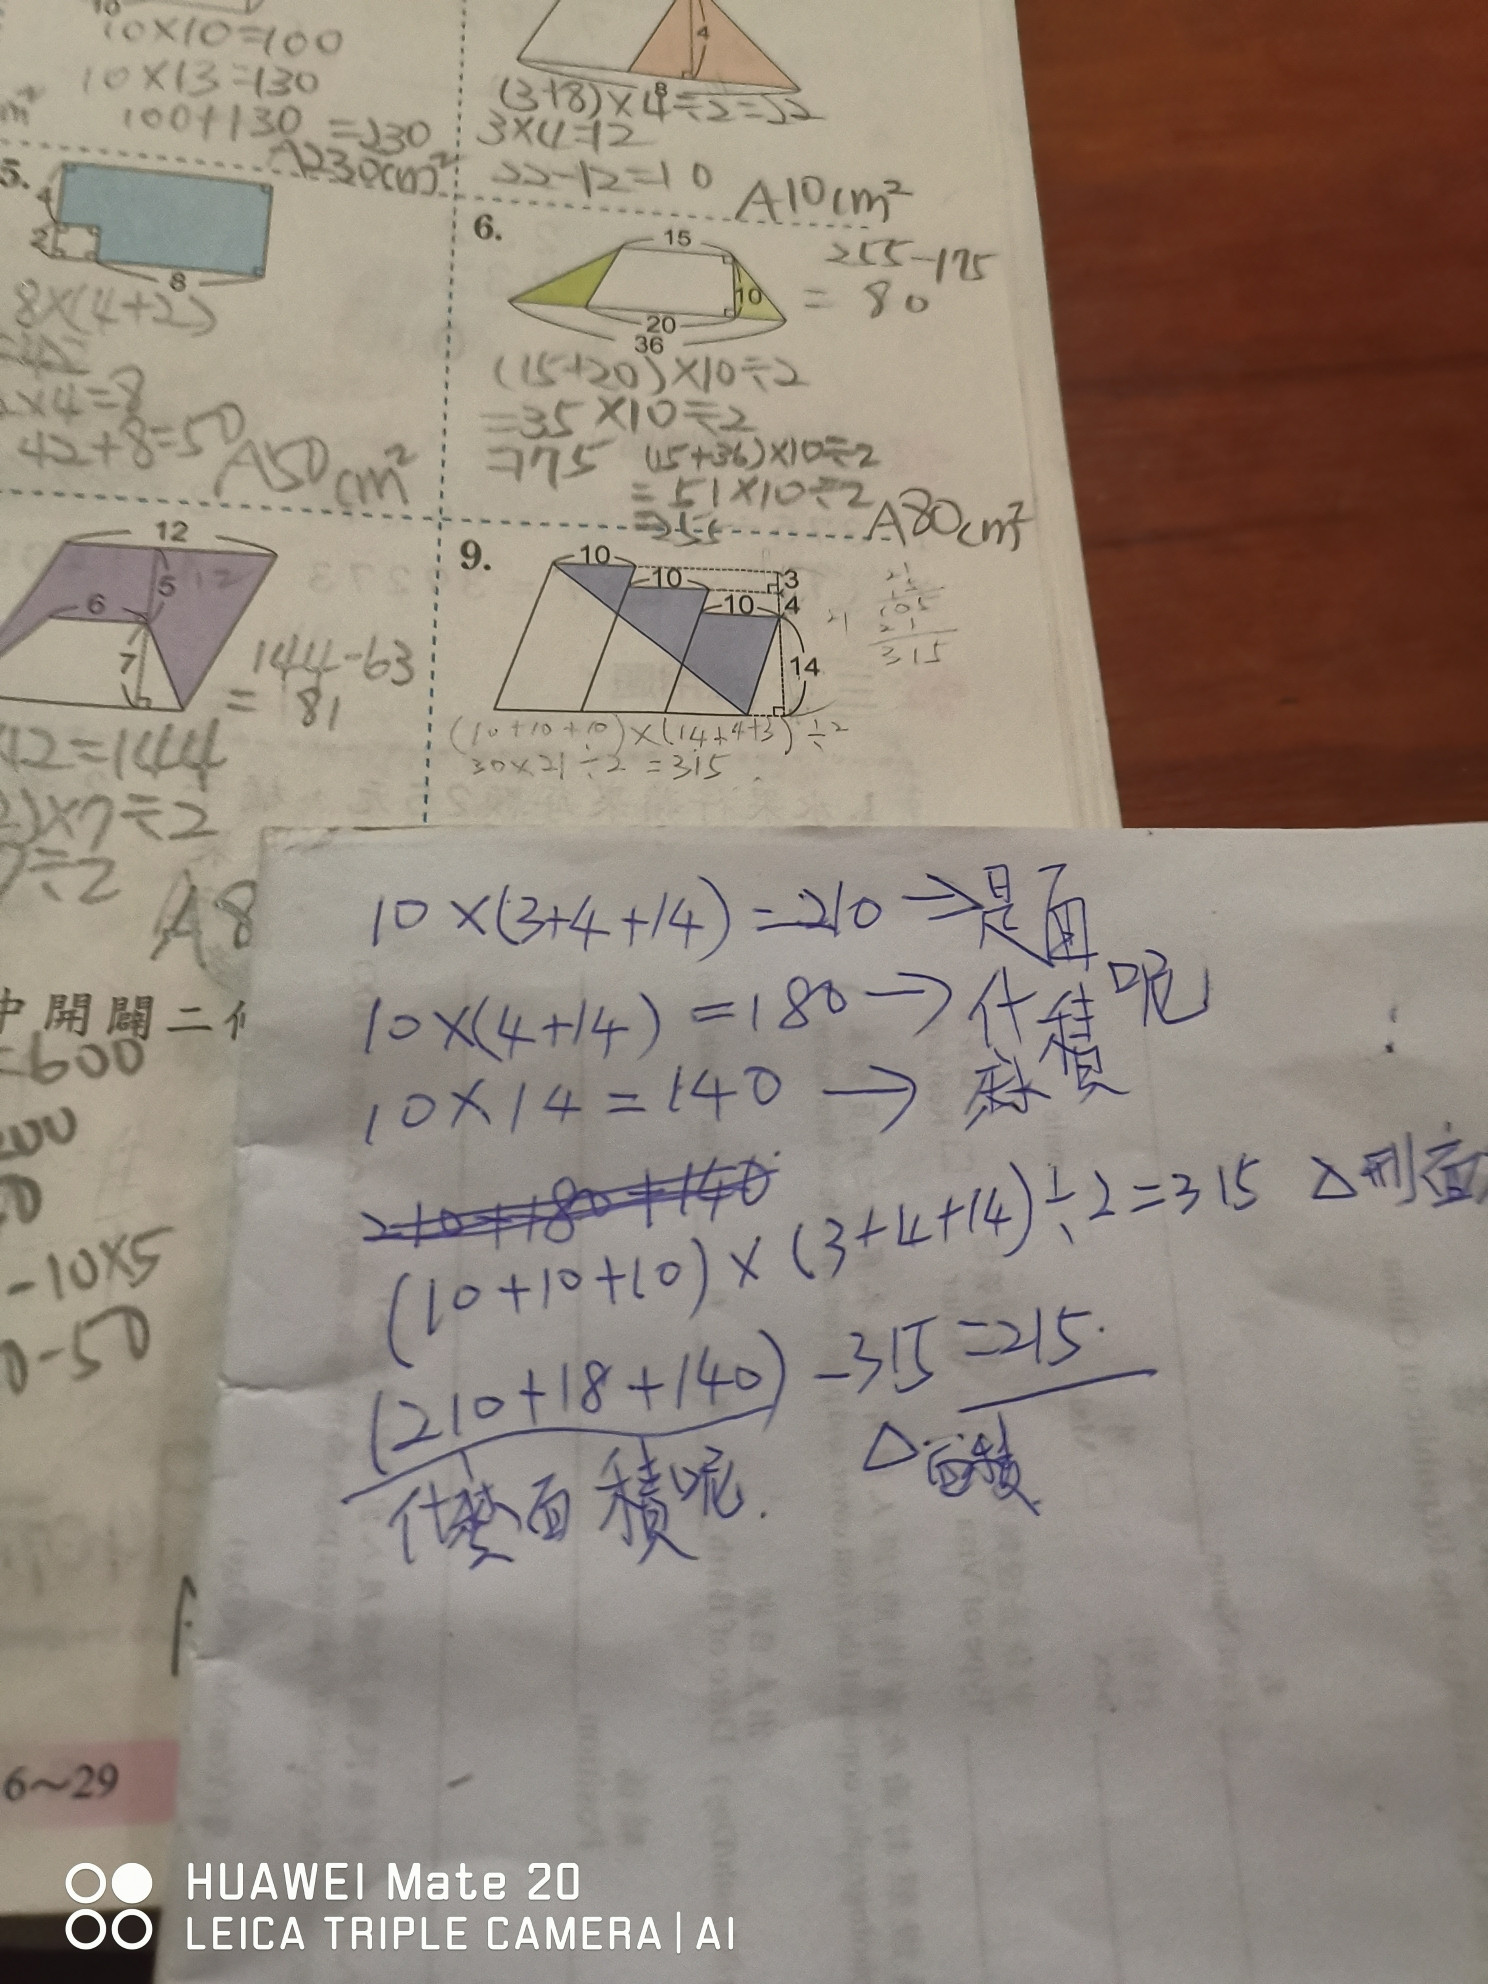 10×10=100
10×13=130
100+130=230
A230cm²
cm²
4
8
(3+8)×4÷2=22
3×4=12
22-12=10
A10cm²
5.
4
2
8
8×(4+2)
×4=8
42+8=50
A50cm²
6.
15
10
20
36
255-175
=80
(15+20)×10÷2
=35×10÷2
=175
(15+36)×10÷2
=51×10÷2
=255
A80cm²
12
5
6
7
144-63
=81
12=144
)×7÷2
÷2
A8
9.
10
10
10
3
4
14
21
105
21
315
(10+10+10)×(14+4+3)÷2
30×21÷2=315
中開闢二
=600
200
-10×5
-50
6～29
10×(3+4+14)=210⇒是面
10×(4+14)=180→什積呢
10×14=140→麽
210+180+140
(10+10+10)×(3+4+14)÷2=315 △形面
(210+18+140)-315=215.
什麽面積呢.
△面積
HUAWEI Mate 20
LEICA TRIPLE CAMERA | AI